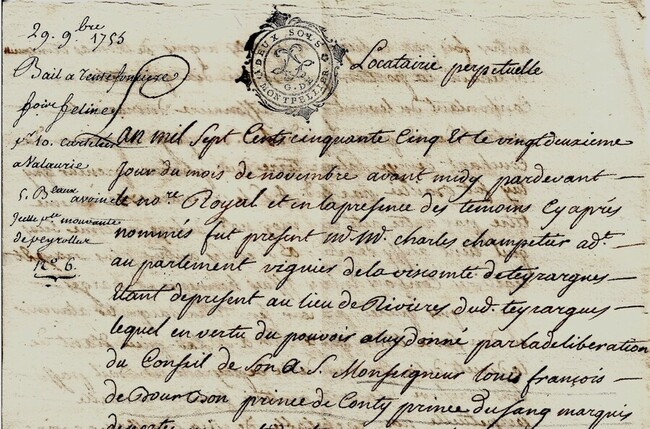 29. 9.bre 1755
Bail a rente fonciere
foin feline
10.
a Valaurie
5. Beaux
mouvante
de peyrollur
N.o 6.
DEUX SOLS
G. DE MONTPELLIER
Locatairie perpetuelle
Lan mil sept Cents cinquante Cinq Et le vingt deuxieme
jour du mois de novembre avant midy pardevant
le no.re Royal et en la presence des temoins Cy aprés
nommés fut present M.e M.e charles champetier ad.t
au parlement viguier de la viscomte de teyrargues
Etant de present au lieu de Rivieres dud. teyrargues
lequel en vertu du pouvoir a luy donné par la deliberation
du Conseil de Son A. S. Monseigneur louis françois
de Bourbon prince de Conty prince du sang marquis